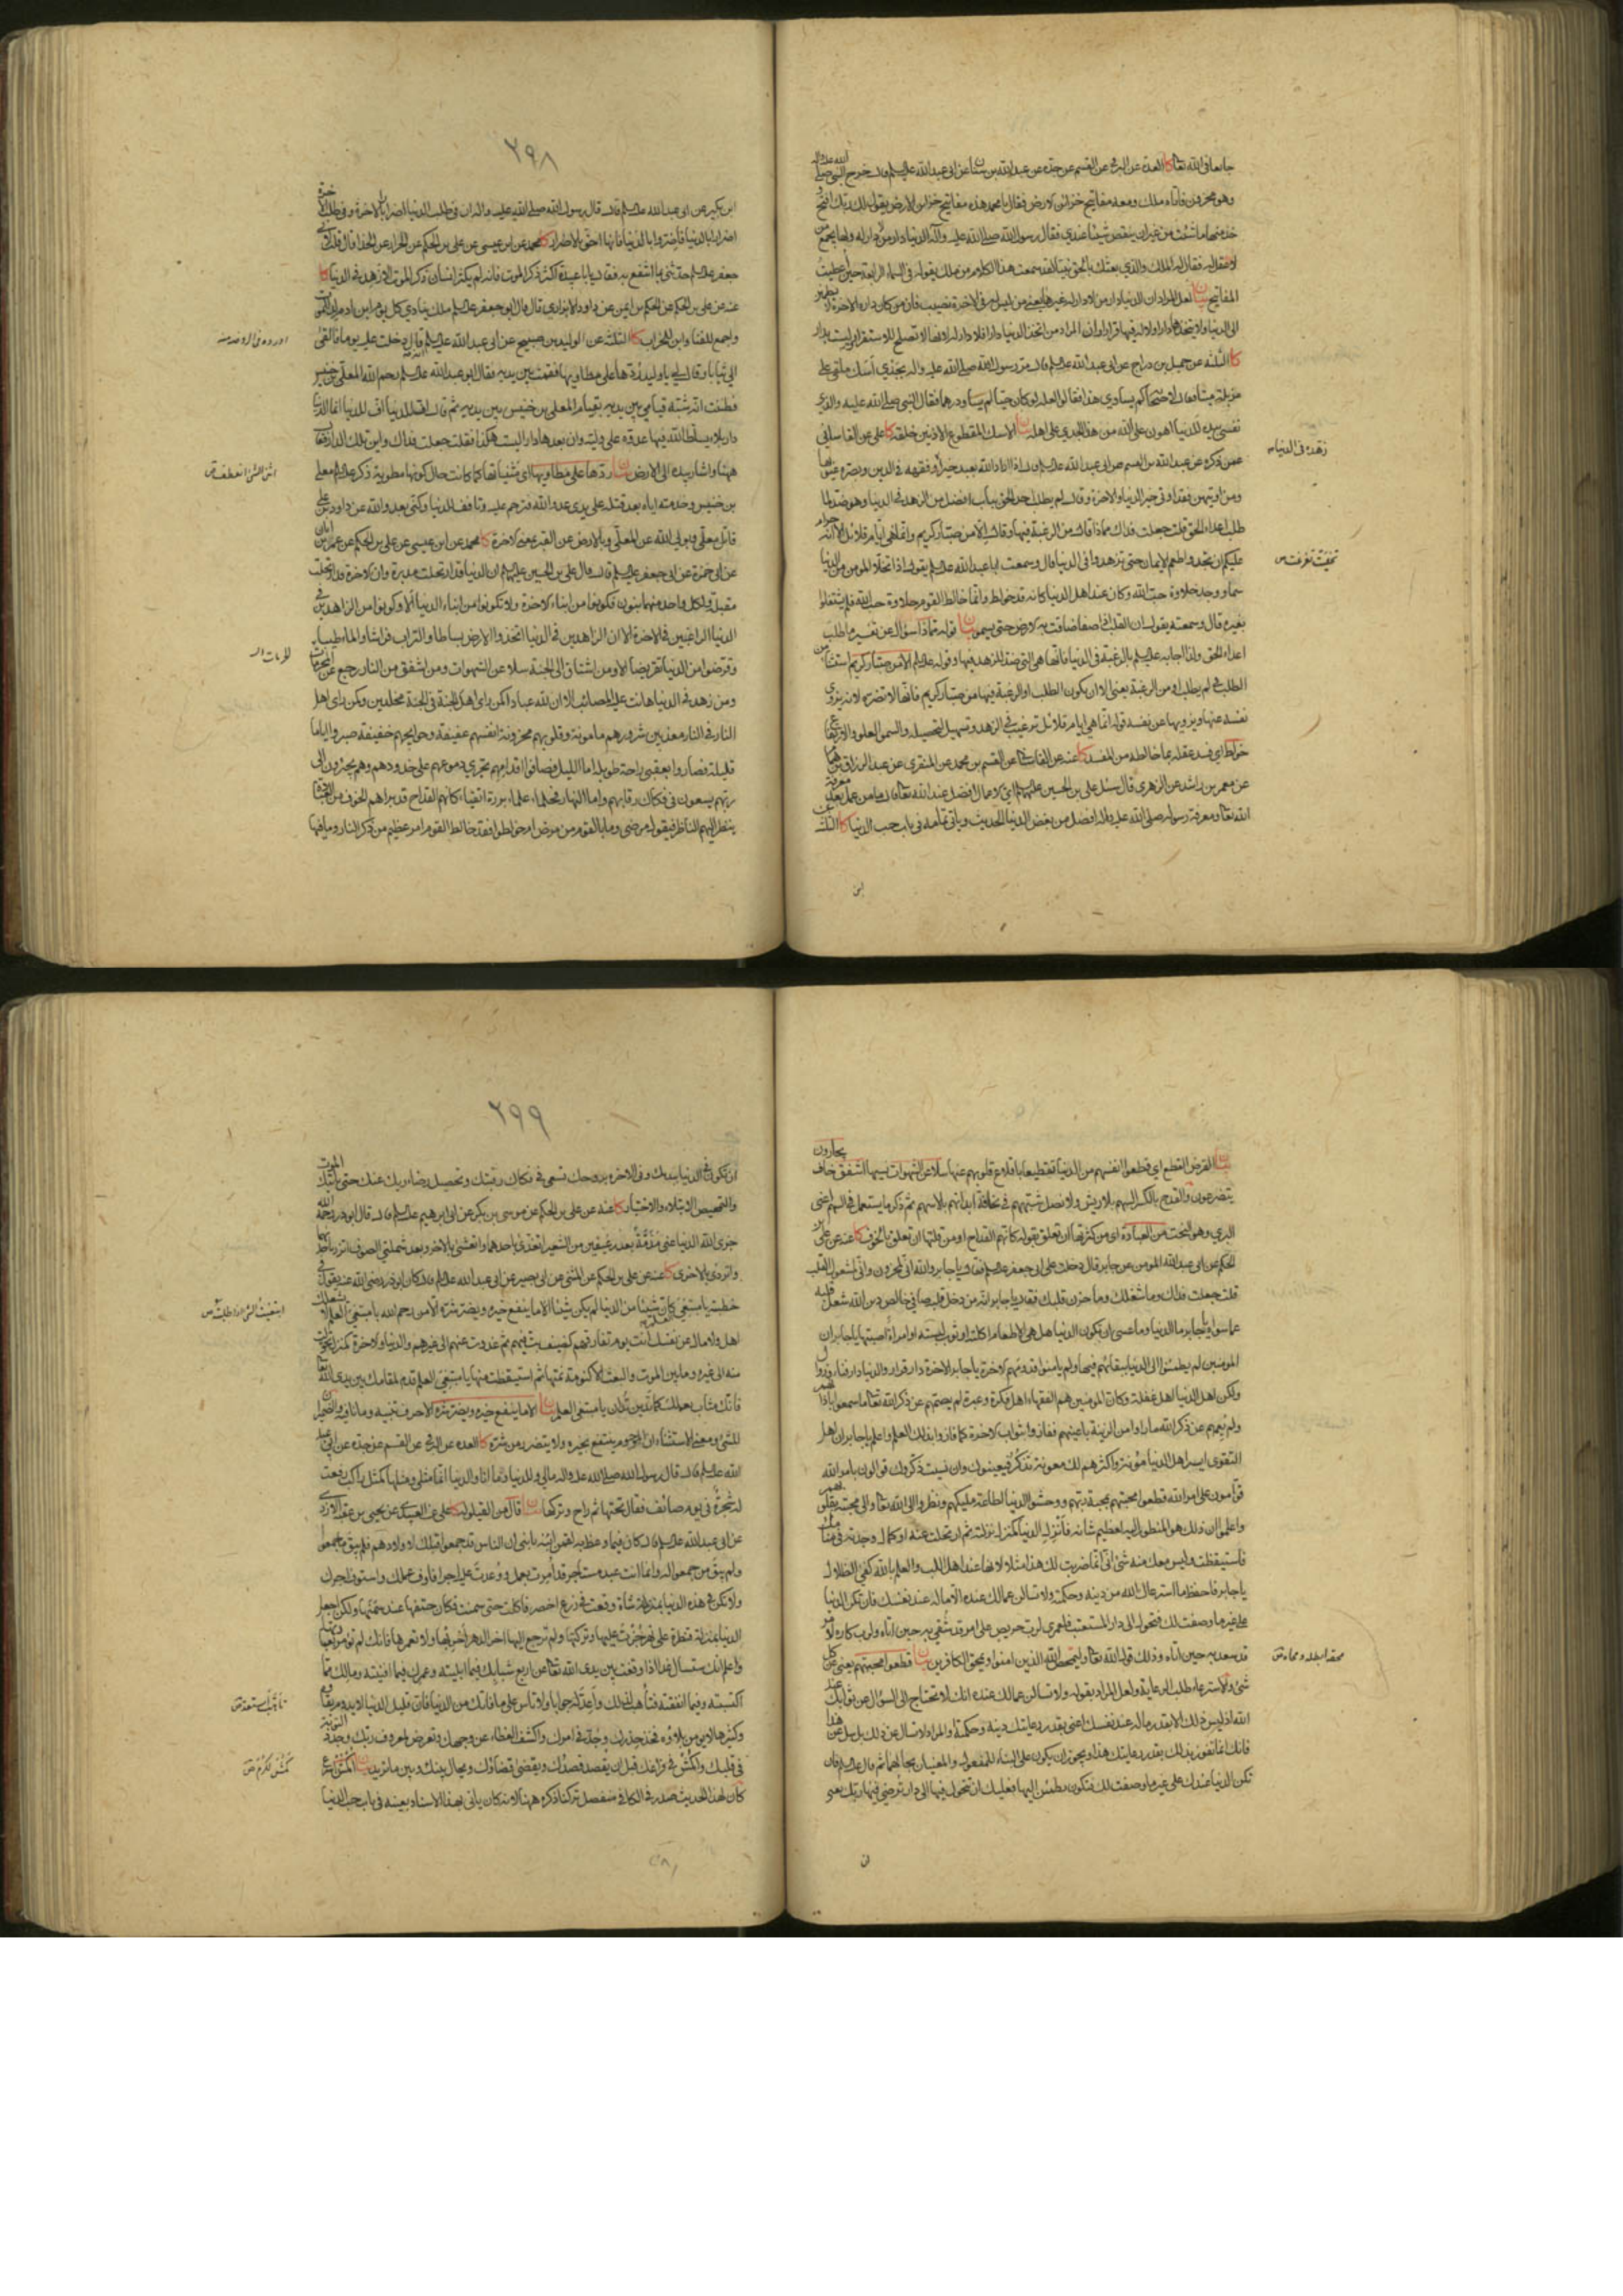 جامعا في الله تعالى كا العدة عن البرقي عن القسم عن جده عن عبد الله بن سنان عن ابي عبد الله عليه السلم قال خرج النبي صلى الله عليه واله
وهو محزون فاتاه ملك ومعه مفاتيح خزائن الارض فقال يا محمد هذه مفاتيح خزائن الارض يقول لك ربك افتح و
خذ منها ما شئت من غير ان ينقص شيئا عندي فقال رسول الله صلى الله عليه وآله الدنيا دار من لا دار له ولها يجمع من
لا عقل له فقال له الملك والذي بعثك بالحق نبيا لقد سمعت هذا الكلام من ملك يقوله في السماء الرابعة حين اعطيت
المفاتيح بيان لعل المراد ان الدنيا دار من لا دار له غيرها يعني من ليس له في الاخرة نصيب فان من كان داره الاخرة لا يطمئن
الى الدنيا ولا يتخذها دارا ولا له فيها قرار او ان المراد من اتخذ الدنيا دارا فلا دار له لانها لا تصلح للاستقرار وليست بدار
كا الثلثة عن جميل بن دراج عن ابي عبد الله عليه السلم قال مر رسول الله صلى الله عليه واله بجدي اسك ملقى على
مزبلة ميتا فقال لاصحابه كم يساوي هذا فقالوا لعله لو كان حيا لم يساو درهما فقال النبي صلى الله عليه واله والذي
نفسي بيده للدنيا اهون على الله من هذا الجدي على اهله بيان الاسك المقطوع الاذنين خلقة كا علي عن القاساني
عمن ذكره عن عبد الله بن القسم عن ابي عبد الله عليه السلم قال اذا اراد الله بعبد خيرا زهده في الدنيا وفقهه في الدين وبصره عيوبها
ومن اوتيهن فقد اوتي خير الدنيا والاخرة وقال لم يطلب احد الحق بباب افضل من الزهد في الدنيا وهو ضد لما
طلب اعداء الحق قلت جعلت فداك مماذا قال من الرغبة فيها وقال الا من صبار كريم وانما هي ايام قلائل الا انه حرام
عليكم ان تجدوا طعم الايمان حتى تزهدوا في الدنيا قال وسمعت ابا عبد الله عليه السلم يقول اذا تخلا المومن من الدنيا
سما ووجد حلاوة حب الله وكان عند اهل الدنيا كانه قد خولط وانما خالط القوم حلاوة حب الله فلم يشتغلوا
بغيره قال وسمعته يقول ان القلب اذا صفا ضاقت به الارض حتى يسمو بيان قوله مماذا سؤال عن تفسير ما طلب
اعداء الحق
الطلب اي لم يطلب او من الرغبة يعني الا ان يكون الطلب او الرغبة فيها من صبار كريم فانها لا تضره لانه يزوي
نفسه عنها ويزويها عن نفسه قوله انما هي ايام قلائل ترغيب في الزهد وتسهيل لتحصيله والسمو العلو والارتفاع
خولط اي فسد عقله بما خالطه من المفسد كا عنه عن القاساني عن القسم بن محمد عن المنقري عن عبد الرزاق بن همام
عن معمر بن راشد عن الزهري قال سئل علي بن الحسين عليهما السلم اي الاعمال افضل عند الله تعالى قال ما من عمل بعد معرفة
الله تعالى ومعرفة رسوله صلى الله عليه واله افضل من بغض الدنيا الحديث وياتي تمامه في باب حب الدنيا كا الثلثة عن
ابن
زهده في الدنيا
٢٩٨
ابن بكير عن ابي عبد الله عليه السلم قال قال رسول الله صلى الله عليه واله ان في طلب الدنيا اضرارا بالاخرة وفي طلب الاخرة
اضرارا بالدنيا فاضروا بالدنيا فانها احق بالاضرار كا محمد عن ابن عيسى عن علي بن الحكم عن الخراز عن الحذاء قال قلت لابي
جعفر عليه السلم حدثني بما انتفع به فقال يا با عبيدة اكثر ذكر الموت فانه لم يكثر انسان ذكر الموت الا زهد في الدنيا كا
عنه عن علي بن الحكم عن الحكم بن ايمن عن داود الابزاري قال قال ابو جعفر عليه السلم ملك ينادي كل يوم ابن ادم لد للموت
واجمع للفناء وابن للخراب كا الثلثة عن الوليد بن صبيح عن ابي عبد الله عليه السلم قال دخلت عليه يوما فالقى
الي ثيابا وقال لي يا وليد ردها على مطاويها فقمت بين يديه فقال ابو عبد الله عليه السلم رحم الله المعلى بن خنيس
فظننت انه شبه قيامي بين يديه بقيام المعلى بن خنيس بين يديه ثم قال اف للدنيا اف للدنيا انما الدنيا
دار بلاء يسلط الله فيها عدوه على وليه وان بعدها دارا ليست هكذا فقلت جعلت فداك واين تلك الدار فقال
ههنا واشار بيده الى الارض بيان ردها على مطاويها اي اثنيها كما كانت حال كونها مطوية ذكر عليه السلم معلى
بن خنيس وخدمته اياه بعد قتله على يدي عدو الله فترحم عليه وتافف للدنيا وكنى بعدو الله عن داود بن علي
قاتل معلى وبولي الله عن المعلى وبالارض عن القبر يعني الاخرة كا محمد عن ابن عيسى عن علي بن الحكم عن عمر بن ابان
عن ابي حمزة عن ابي جعفر عليه السلم قال قال علي بن الحسين عليهما السلم ان الدنيا قد ارتحلت مدبرة وان الاخرة قد ارتحلت
مقبلة ولكل واحدة منهما بنون فكونوا من ابناء الاخرة ولا تكونوا من ابناء الدنيا الا وكونوا من الزاهدين في
الدنيا الراغبين في الاخرة الا ان الزاهدين في الدنيا اتخذوا الارض بساطا والتراب فراشا والماء طيبا
وقرضوا من الدنيا تقريضا الا ومن اشتاق الى الجنة سلا عن الشهوات ومن اشفق من النار رجع عن المحرمات
ومن زهد في الدنيا هانت عليه المصائب الا ان لله عبادا كمن راى اهل الجنة في الجنة مخلدين وكمن راى اهل
النار في النار معذبين شرورهم مامونة وقلوبهم محزونة انفسهم عفيفة وحوايجهم خفيفة صبروا اياما
قليلة فصاروا بعقبى راحة طويلة اما الليل فصافوا اقدامهم تجري دموعهم على خدودهم وهم يجئرون الى
ربهم يسعون في فكاك رقابهم واما النهار فحلماء علماء بررة اتقياء كانهم القداح قد براهم الخوف من العبادة
ينظر اليهم الناظر فيقول مرضى وما بالقوم من مرض ام خولطوا فقد خالط القوم امر عظيم من ذكر النار وما فيها
بيان القرض القطع اي قطعوا انفسهم من الدنيا تقطيعا باقلاع قلوبهم عنها سلا عن الشهوات نسيها اشفق خاف يجارون
يتضرعون والقدح بالكسر السهم بلا ريش ولا نصل شبههم في نحافة ابدانهم بالاسهم ثم ذكر ما يستعمل في السهم اعني
البري وهو النحت من العبادة اي من كثرتها ان تعلق بقوله كانهم القداح او من قلتها ان تعلق بالخوف كا عنه عن علي بن
الحكم عن ابي عبد الله المومن عن جابر قال دخلت على ابي جعفر عليه السلم فقال يا جابر والله اني لمحزون واني لمشغول القلب
قلت جعلت فداك وما شغلك وما حزن قلبك فقال يا جابر انه من دخل قلبه صافي خالص دين الله شغل قلبه
عما سواه يا جابر ما الدنيا وما عسى ان تكون الدنيا هل هي الا طعام اكلته او ثوب لبسته او امراة اصبتها يا جابر ان
المومنين لم يطمئنوا الى الدنيا ببقائهم فيها ولم يامنوا قدومهم الاخرة يا جابر الاخرة دار قرار والدنيا دار فناء وزوال
ولكن اهل الدنيا اهل غفلة وكان المومنين هم الفقهاء اهل فكرة وعبرة لم يصمهم عن ذكر الله تعالى ما سمعوا باذانهم
ولم يعمهم عن ذكر الله ما راوا من الزينة باعينهم ففازوا بثواب الاخرة كما فازوا بذلك العلم واعلم يا جابر ان اهل
التقوى ايسر اهل الدنيا مؤنة واكثرهم لك معونة تذكر فيعينوك وان نسيت ذكروك قوالون بامر الله
قوامون على امر الله قطعوا محبتهم بمحبة ربهم ووحشوا الدنيا لطاعة مليكهم ونظروا الى الله تعالى والى محبته بقلوبهم
واعلموا ان ذلك هو المنظور اليه لعظيم شانه فانزل الدنيا كمنزل نزلته ثم ارتحلت عنه او كمال وجدته في منامك
فاستيقظت وليس معك منه شئ اني انما ضربت لك هذا مثلا لانها عند اهل اللب والعلم بالله كفئ الظلال
يا جابر فاحفظ ما استرعاك الله من دينه وحكمته ولا تسالن عما لك عنده الا ما له عند نفسك فان تكن الدنيا
على غير ما وصفت لك فتحول الى دار المستعتب فلعمري لرب حريص على امر قد شقي به حين اتاه ولرب كاره لامر
قد سعد به حين اتاه وذلك قول الله تعالى وليمحص الله الذين امنوا ويمحق الكافرين بيان قطعوا محبتهم يعني عن كل
شئ والاسترعاء طلب الرعاية ولعل المراد بقوله ولا تسالن عما لك عنده انك لا تحتاج الى السؤال عن ثوابك عند
الله اذ ليس ذلك الا بقدر ما له عند نفسك اعني بقدر رعايتك دينه وحكمته والمراد لا تسال عن ذلك بل سل عن هذا
فانك انما تفوز بذلك بقدر رعايتك هذا ويجوز ان يكون على البناء للمفعول والمعنيان بحالهما ثم قال عليه السلم فان
تكن الدنيا عندك على غير ما وصفت لك فتكون تطمئن اليها فعليك ان تتحول فيها الى دار ترضي فيها ربك يعني
ن
٢٩٩
ان تكون في الدنيا ببدنك وفي الاخرة بروحك تسعى في فكاك رقبتك وتحصيل رضاء ربك عنك حتى ياتيك الموت
والتمحيص الابتلاء والاختبار كا عنه عن علي بن الحكم عن موسى بن بكر عن ابي ابرهيم عليه السلم قال قال ابو ذر رحمه الله
جزى الله الدنيا عني مذمة بعد رغيفين من الشعير اتغدى باحدهما واتعشى بالاخر وبعد شملتي الصوف اتزر باحديهما
واتردى بالاخرى كا عنه عن علي بن الحكم عن المثنى عن ابي بصير عن ابي عبد الله عليه السلم قال كان ابو ذر رضي الله عنه يقول في
خطبته يا مبتغي العلم كان شيئا من الدنيا لم يكن شيئا الا ما ينفع خيره ويضر شره الا من رحم الله يا مبتغي العلم لا يشغلك
اهل ولا مال عن نفسك انت يوم تفارقهم كضيف بت فيهم ثم غدوت عنهم الى غيرهم والدنيا والاخرة كمنزل تحولت
منه الى غيره وما بين الموت والبعث الا كنومة نمتها ثم استيقظت منها يا مبتغي العلم قدم لمقامك بين يدي الله تعالى
فانك مثاب بعملك كما تدين تدان يا مبتغي العلم بيان الا ما ينفع خيره ويضر شره الا حرف تنبيه وما نافية والضميران
للشئ ومعنى الاستثناء ان المرحوم ينتفع بخيره ولا يتضرر من شره كا العدة عن البرقي عن القسم عن جده عن ابي عبد
الله عليه السلم قال قال رسول الله صلى الله عليه واله ما لي وللدنيا وما انا والدنيا انما مثلي ومثلها كمثل راكب رفعت
له شجرة في يوم صائف فقال تحتها ثم راح وتركها بيان قال من القيلولة كا علي عن العبيدي عن يحيى بن عقبة الازدي
عن ابي عبد الله عليه السلم قال كان فيما وعظ به لقمن ابنه يا بني ان الناس قد جمعوا قبلك لاولادهم فلم يبق ما جمعوا
ولم يبق من جمعوا له وانما انت عبد مستاجر قد امرت بعمل ووعدت عليه اجرا فاوف عملك واستوف اجرك
ولا تكن في هذه الدنيا بمنزلة شاة وقعت في زرع اخضر فاكلت حتى سمنت فكان حتفها عند سمنها ولكن اجعل
الدنيا بمنزلة قنطرة على نهر جزت عليها وتركتها ولم ترجع اليها اخر الدهر اخربها ولا تعمرها فانك لم تؤمر بعمارتها
واعلم انك ستسال غدا اذا وقفت بين يدي الله تعالى عن اربع شبابك فيما ابليته وعمرك فيما افنيته ومالك مما
اكتسبته وفيما انفقته فتاهب لذلك واعد له جوابا ولا تاس على ما فاتك من الدنيا فان قليل الدنيا لا يدوم بقاؤه
وكثيرها لا يؤمن بلاؤه فخذ حذرك وجد في امرك واكشف الغطاء عن وجهك وتعرض لمعروف ربك وجدد التوبة
في قلبك واكمش في فراغك قبل ان يقصد قصدك ويقضى قضاؤك ويحال بينك وبين ما تريد بيان اكمش اسرع
كان لهذا الحديث صدر في الكافي منفصل تركنا ذكره ههنا لانه كان ياتي بهذا الاسناد بعينه في باب حب الدنيا